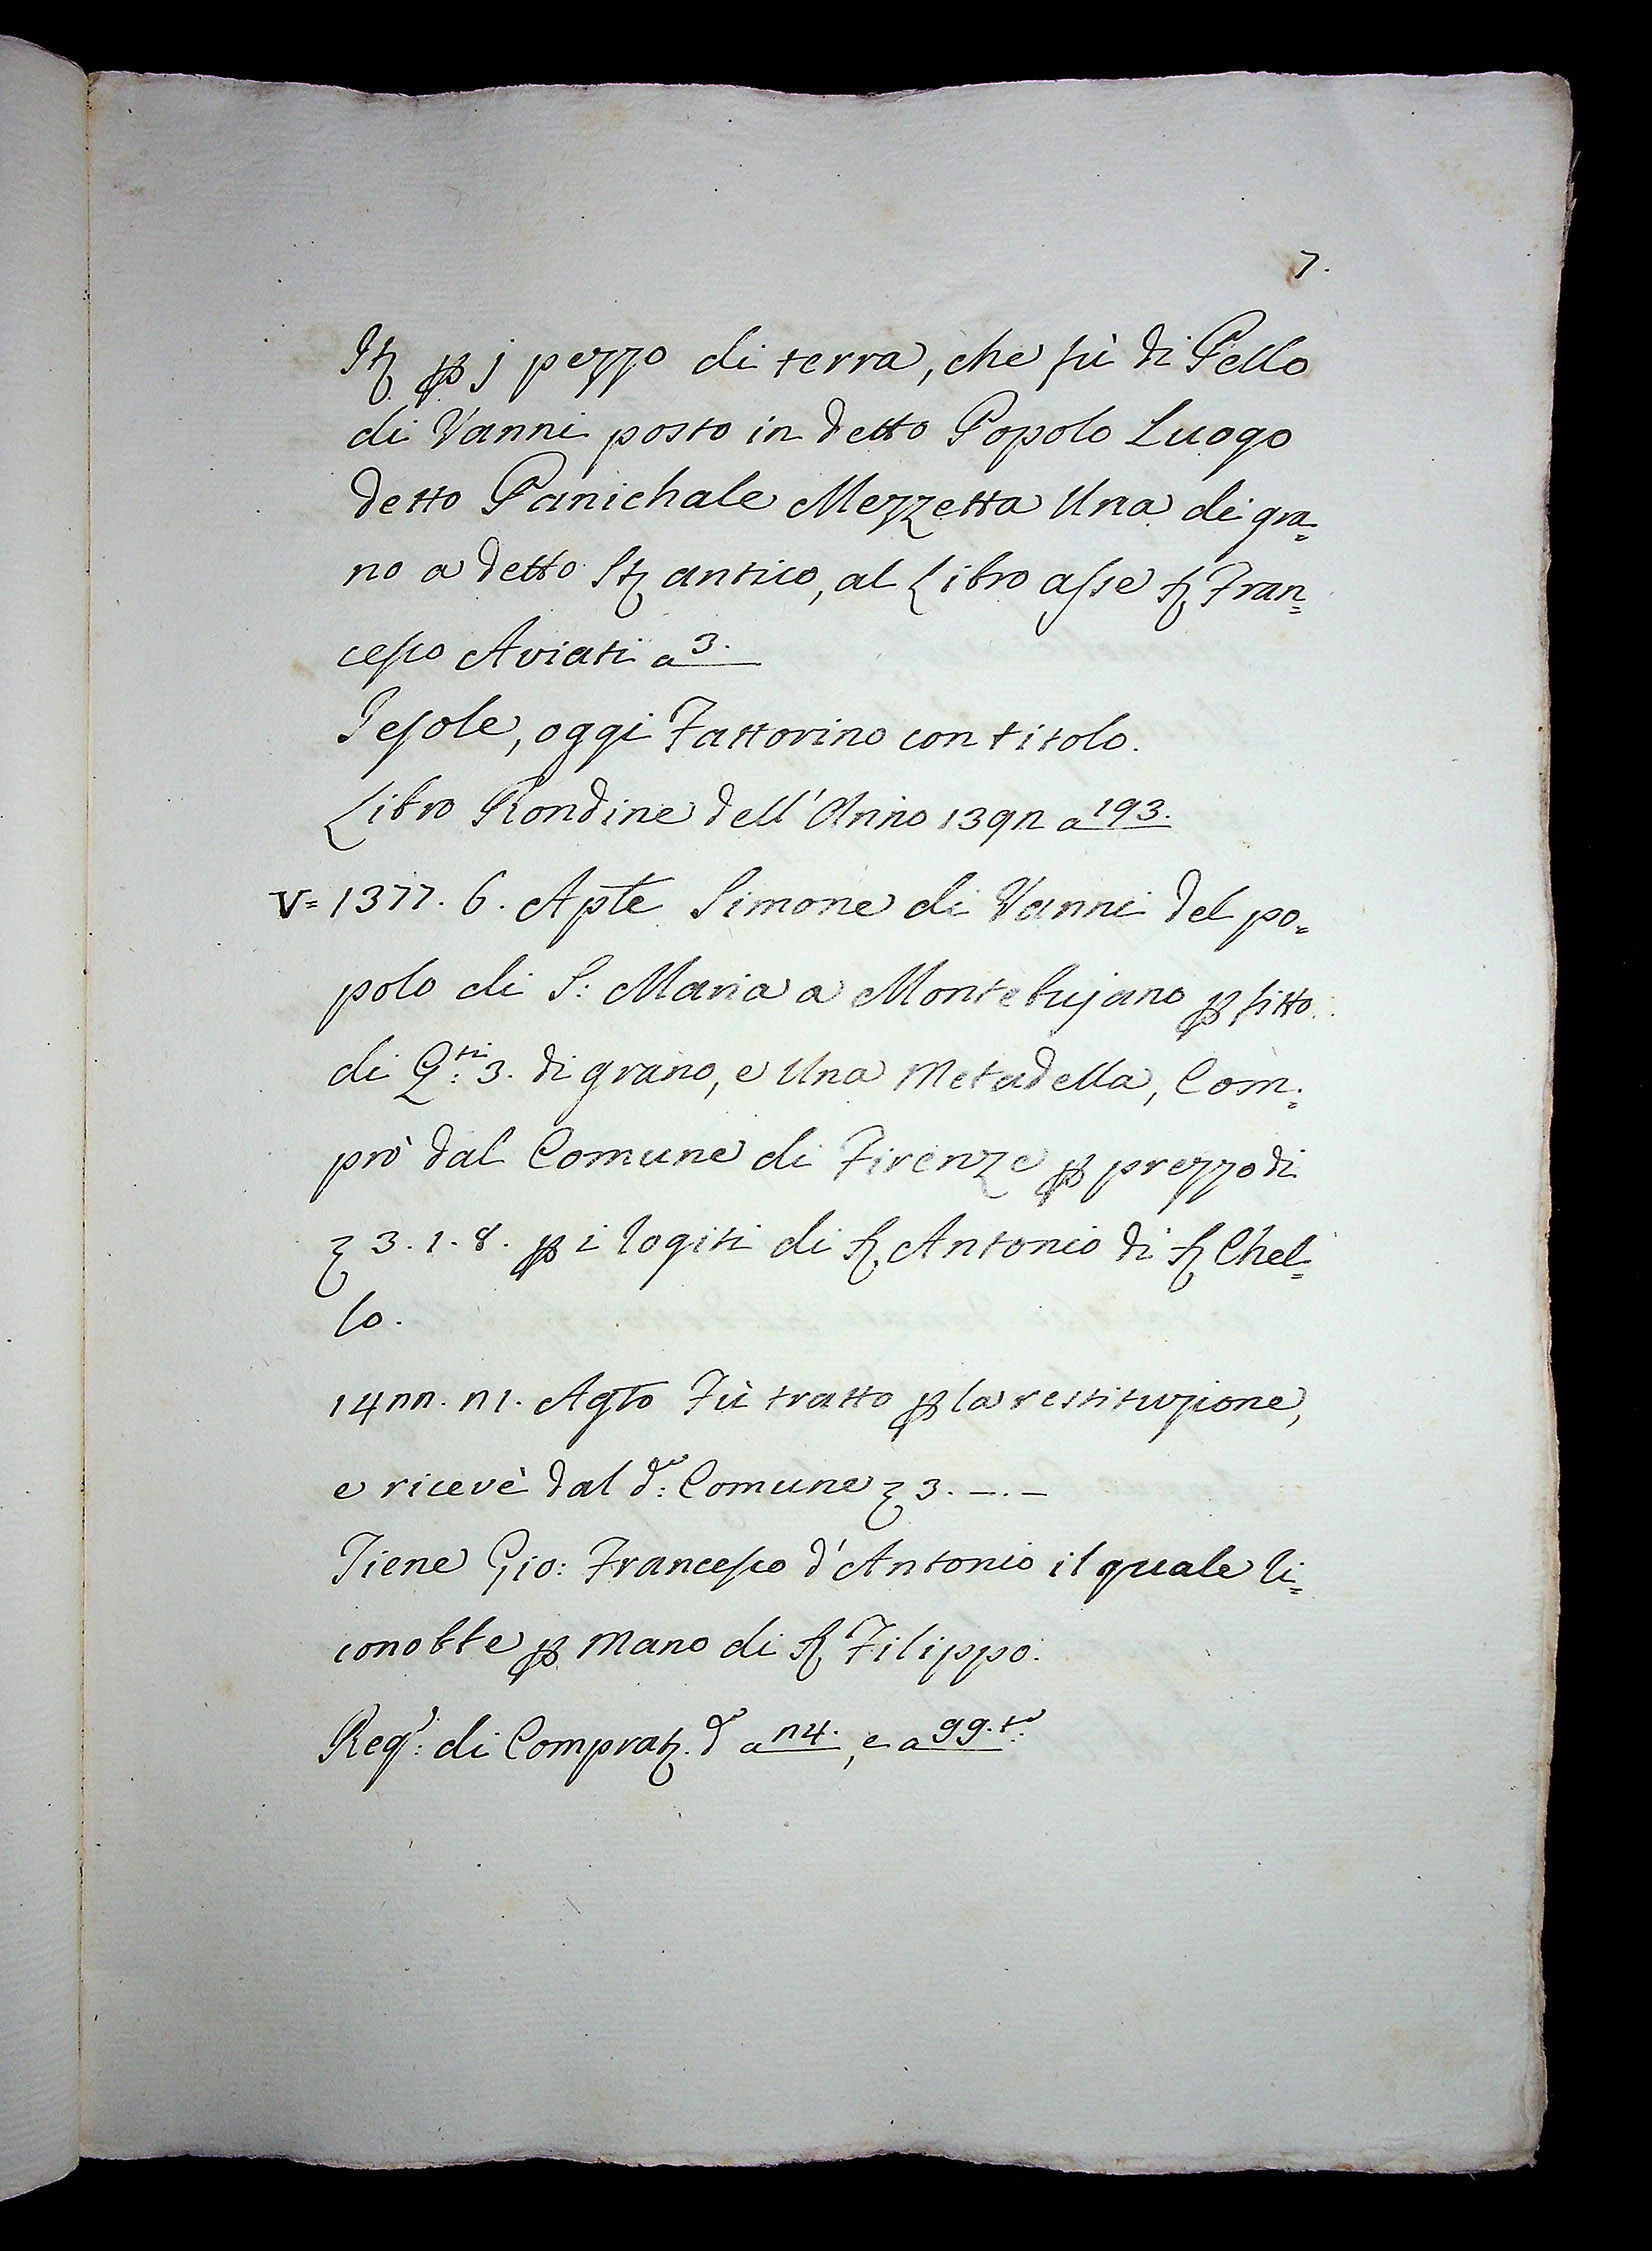 7.
Itȝ ꝑ j pezzo di terra, che fù di Pello
di Vanni posto in detto Popolo Luogo
detto Panichale Mezzetta Una di gra=
no a detto Stȝ antico, al Libro asse Sȝ Fran=
cesco Aviati a 3.
Iesole, oggi Fattorino con titolo.
Libro Rondine dell'Anno 139n a 193.
V= 1377. 6. Aple Simone di Vanni del po=
polo di S: Maria a Montebujano ꝑ fitto
di Q:ti 3. di grano, e Una Metadella, Com=
prò dal Comune di Firenze ꝑ prezzo di
ʒ 3. 1. 8. ꝑ i rogiti di Sȝ Antonio di Sȝ Chel=
lo.
14nn. n1. Agto Fù tratto ꝑ la restituzione,
e ricevè dal do: Comune ʒ 3. –. –
Tiene Gio: Francesco d'Antonio il quale ri=
conobbe ꝑ mano di Sȝ Filippo.
Rego: di Compratȝ. do a n4., e a 99. to: